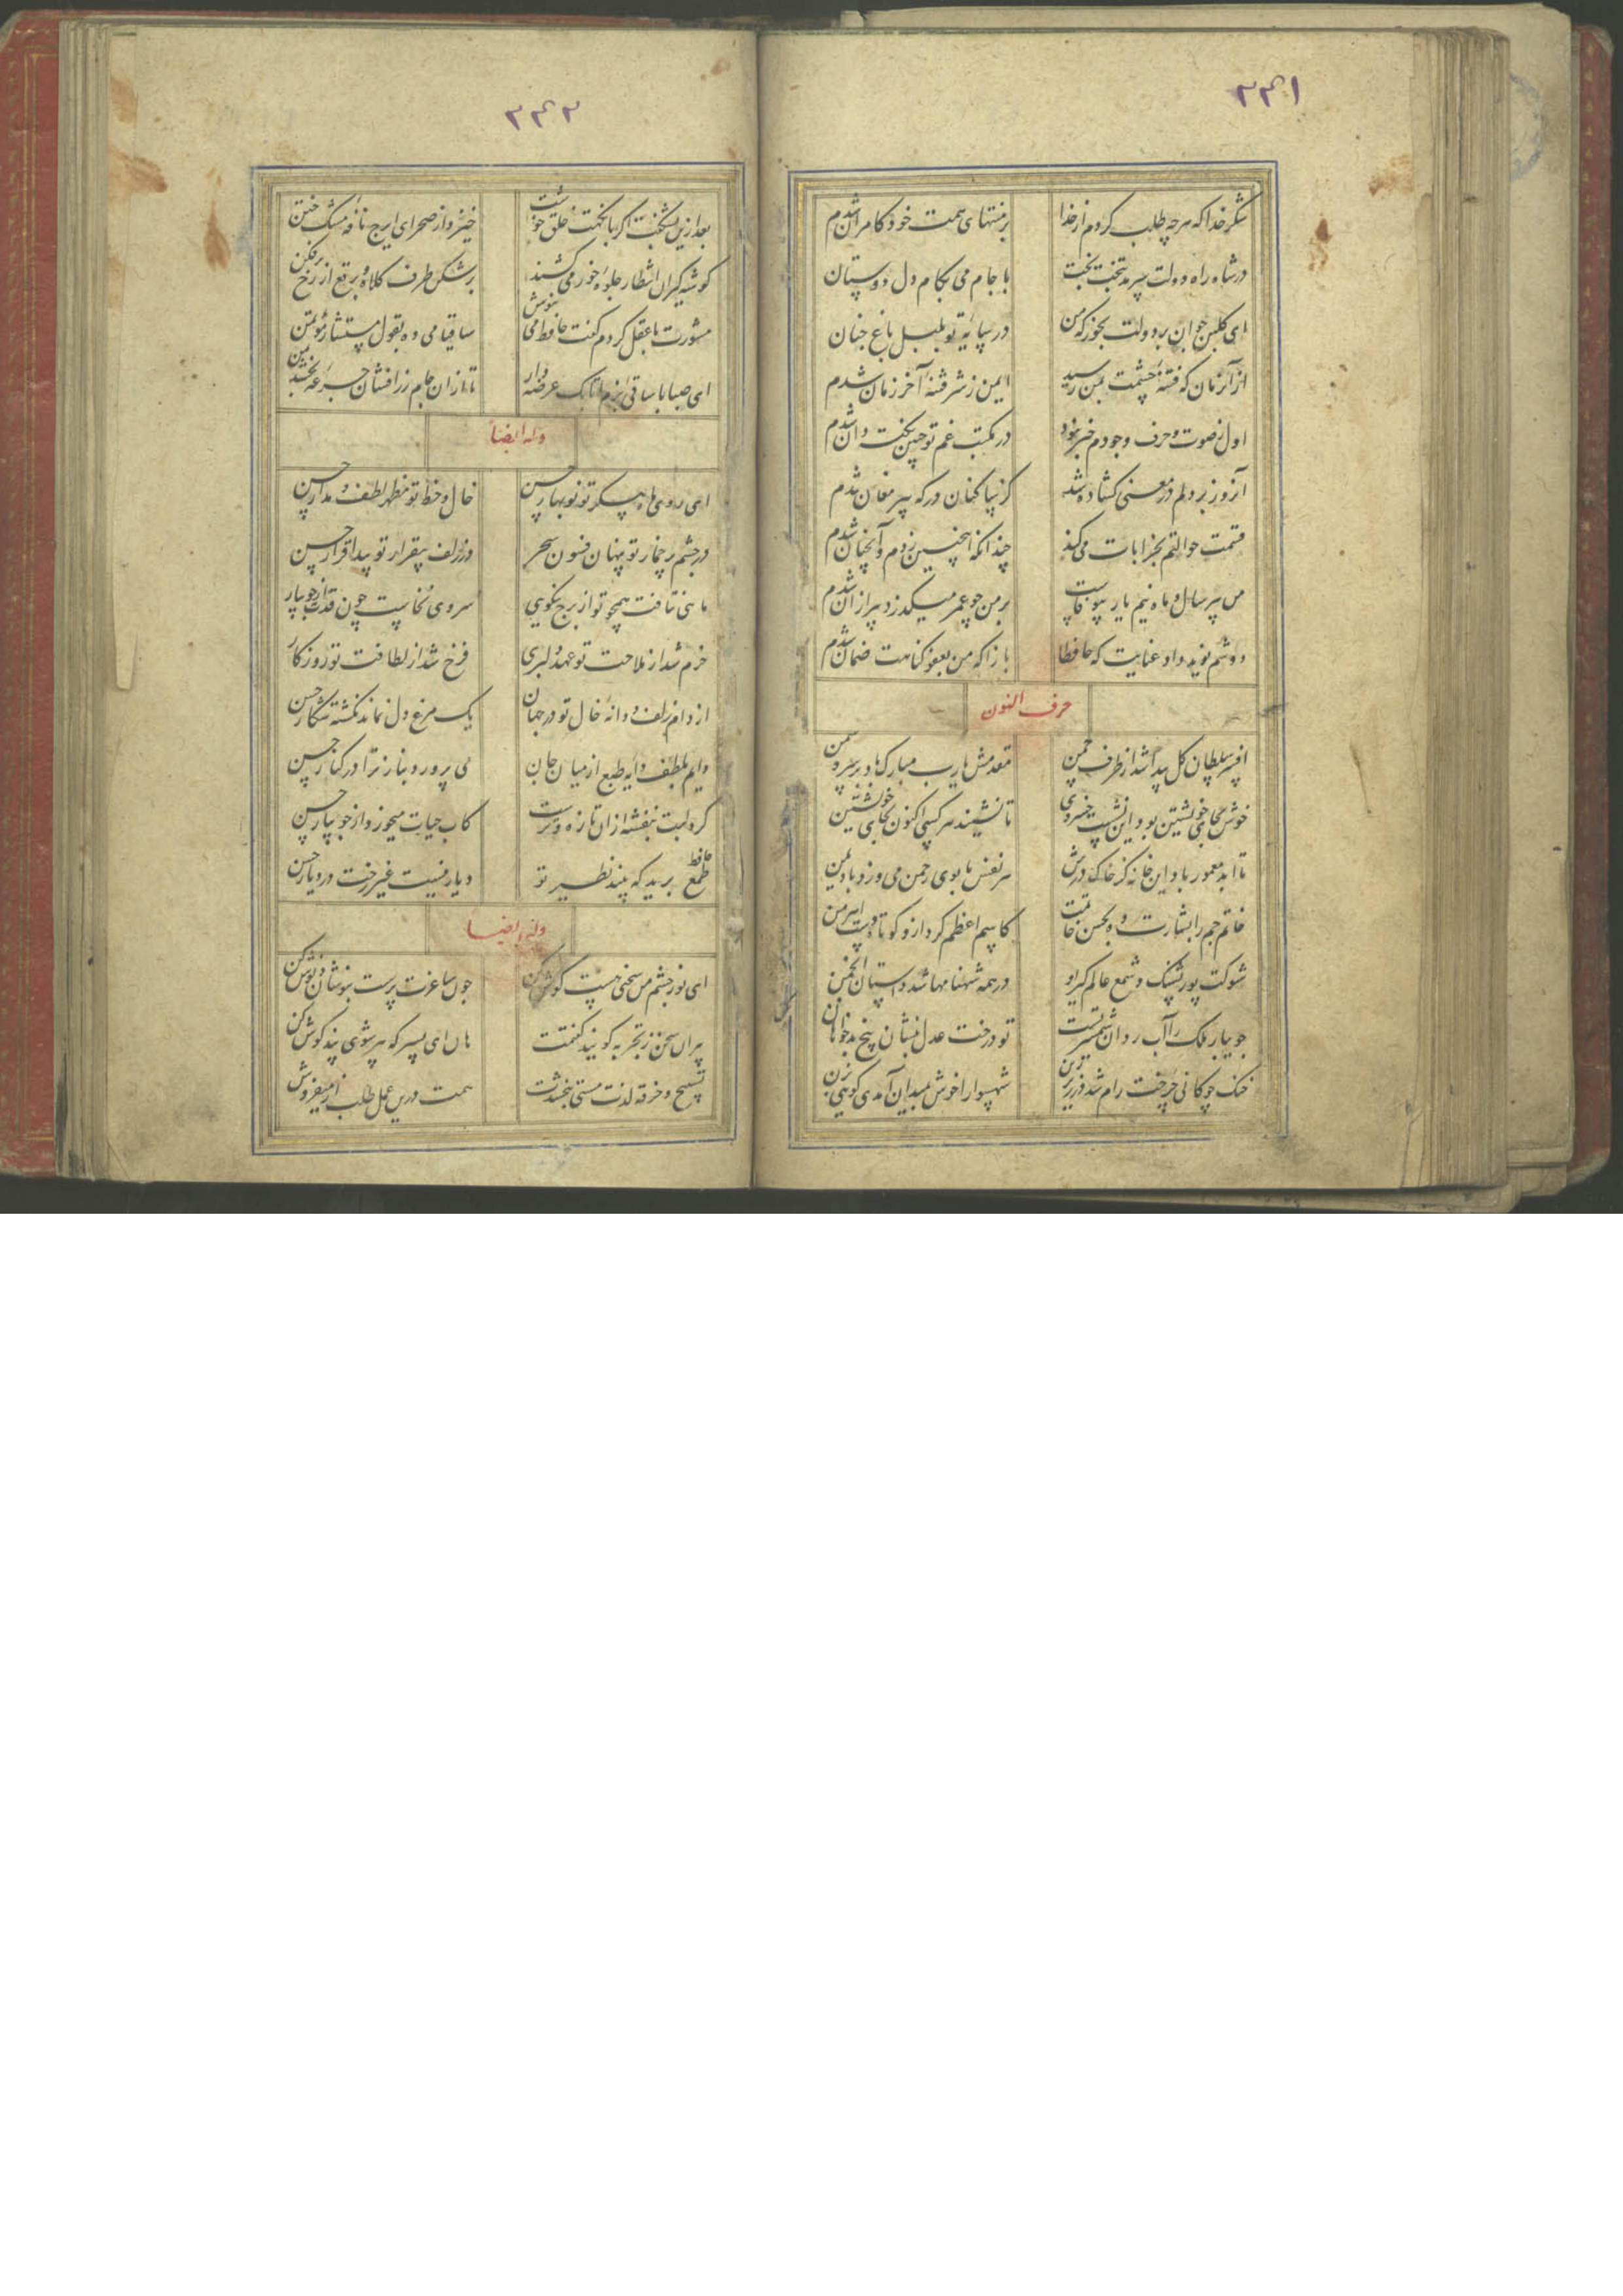 ۳۴۱
شکر خدا که هرچه طلب کردم از خدا بر منتهای همت خود کامران شدم
در شاه راه دولت سرمد بتخت بخت با جام می بکام دل دوستان شدم
ای گلبن جوان بر دولت بخور که من در سایه تو بلبل باغ جنان شدم
از آن زمان که فتنه چشمت بمن رسید ایمن ز شر فتنه آخر زمان شدم
اول ز صوت و حرف وجودم خبر نبود در مکتب غم تو چنین نکته دان شدم
آنروز بر دلم در معنی گشاده شد کز ساکنان درکه پیر مغان شدم
قسمت حوالتم بخرابات می کند چندانکه اینچنین زدم و آنچنان شدم
من پیر سال و ماه نیم یار بیوفاست بر من چو عمر میگذرد پیر از آن شدم
دوشم نوید داد عنایت که حافظا باز آ که من بعفو گناهت ضمان شدم
حرف النون
افسر سلطان گل پیدا شد از طرف چمن مقدمش یارب مبارک باد بر سرو و سمن
خوش بجای خویشتن بود این نشست خسروی تا نشیند هر کسی اکنون بجای خویشتن
تا ابد معمور باد این خانه کز خاک درش هر نفس با بوی رحمن می وزد باد یمن
خاتم جم را بشارت ده بحسن خاتمت کاسم اعظم کرد ازو کوتاه دست اهرمن
شوکت پور پشنگ و شمع عالم گیر او در همه شهنامها شد داستان انجمن
جویبار ملک را آب روان شمشیر تست تو درخت عدل بنشان بیخ بدخواهان
خنک چوگانی چرخت رام شد در زیر زین شهسوارا خوش بمیدان آمدی گویی بزن
۳۴۲
بعد ازین نشکفت اگر با نکهت خلق خوشت خیزد از صحرای ایرج نافه مشک ختن
گوشه گیران انتظار جلوه خور می کشند بر شکن طرف کلاه و برقع از رخ برفکن
مشورت با عقل کردم گفت حافظ می بنوش ساقیا می ده بقول مستشار مؤتمن
ای صبا با ساقی بزم اتابک عرضه دار تا از ان جام زرافشان جرعه بخشد بمن
وله ایضاً
ای روی ماه پیکر تو نوبهار حسن خال و خط تو خط لطف و مدار حسن
در چشم پر خمار تو پنهان فسون سحر در زلف بیقرار تو پیدا قرار حسن
ماهی نتافت همچو تو از برج نیکویی سروی نخاست چون قدت از جویبار
خرم شد از ملاحت تو عهد دلبری فرخ شد از لطافت تو روزگار
از دام زلف و دانه خال تو در جهان یک مرغ دل نماند نگشته شکار حسن
دایم بلطف دایه طبع از میان جان می پرورد بناز ترا در کنار حسن
گرد لبت بنفشه از ان تازه و ترست کاب حیات میخورد از جویبار حسن
حافظ طمع برید که بیند نظیر تو دیار نیست غیر رخت در دیار حسن
وله ایضا
ای نور چشم من سخنی هست گوش کن چون ساغرت پرست بنوشان و نوش کن
پیران سخن ز تجربه گویند گفتمت هان ای پسر که پیر شوی پند گوش کن
تسبیح و خرقه لذت مستی نبخشدت همت درین عمل طلب از میفروش